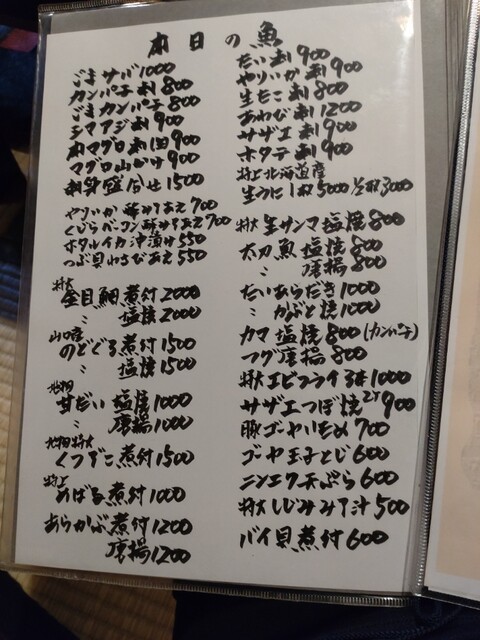 本日の魚
ごまサバ1000
カンパチ刺800
ごまカンパチ800
シマアジ刺900
本マグロ刺900
マグロ山かけ900
刺身盛合せ1500
やりいか酢みそあえ700
くじらベーコン酢みそあえ700
ホタルイカ沖漬け550
つぶ貝わさびあえ550
特大
金目鯛煮付2000
〃 塩焼2000
山口産
のどぐろ煮付1500
〃 塩焼1500
甘だい塩焼1000
〃 唐揚1000
特大
くつぞこ煮付1500
特上
めばる煮付1000
あらかぶ煮付1200
唐揚1200
たい刺900
やりいか刺900
生たこ刺800
あわび刺1200
サザエ刺900
ホタテ刺900
特上北海道産
生うに1枚5000 1/2枚3000
特大生サンマ塩焼800
太刀魚塩焼800
〃 唐揚800
たいあらだき1000
〃 かぶと焼1000
カマ塩焼800(カンパチ)
フグ唐揚800
特大エビフライ3本1000
サザエつぼ焼2ケ900
豚ゴーヤいため700
ゴーヤ玉子とじ600
ニンニク天ぷら600
特大しじみみそ汁500
バイ貝煮付600